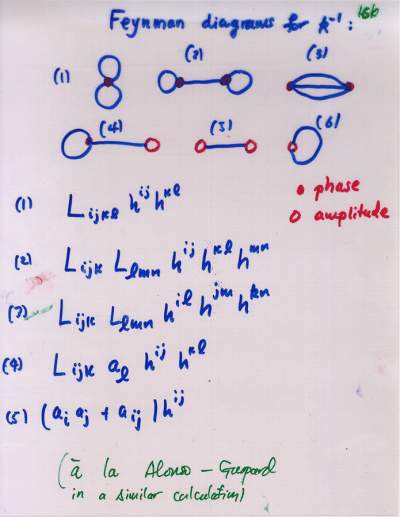 Feynman diagrams for k⁻¹: 15b
(1) (2) (3)
(4) (5) (6)
• phase
o amplitude
(1) L_{ijkl} h^{ij} h^{kl}
(2) L_{ijk} L_{lmn} h^{ij} h^{kl} h^{mn}
(3) L_{ijk} L_{lmn} h^{il} h^{jm} h^{kn}
(4) L_{ijk} a_l h^{ij} h^{kl}
(5) (a_i a_j + a_{ij}) h^{ij}
(à la Alonso – Gaspard
in a similar calculation)